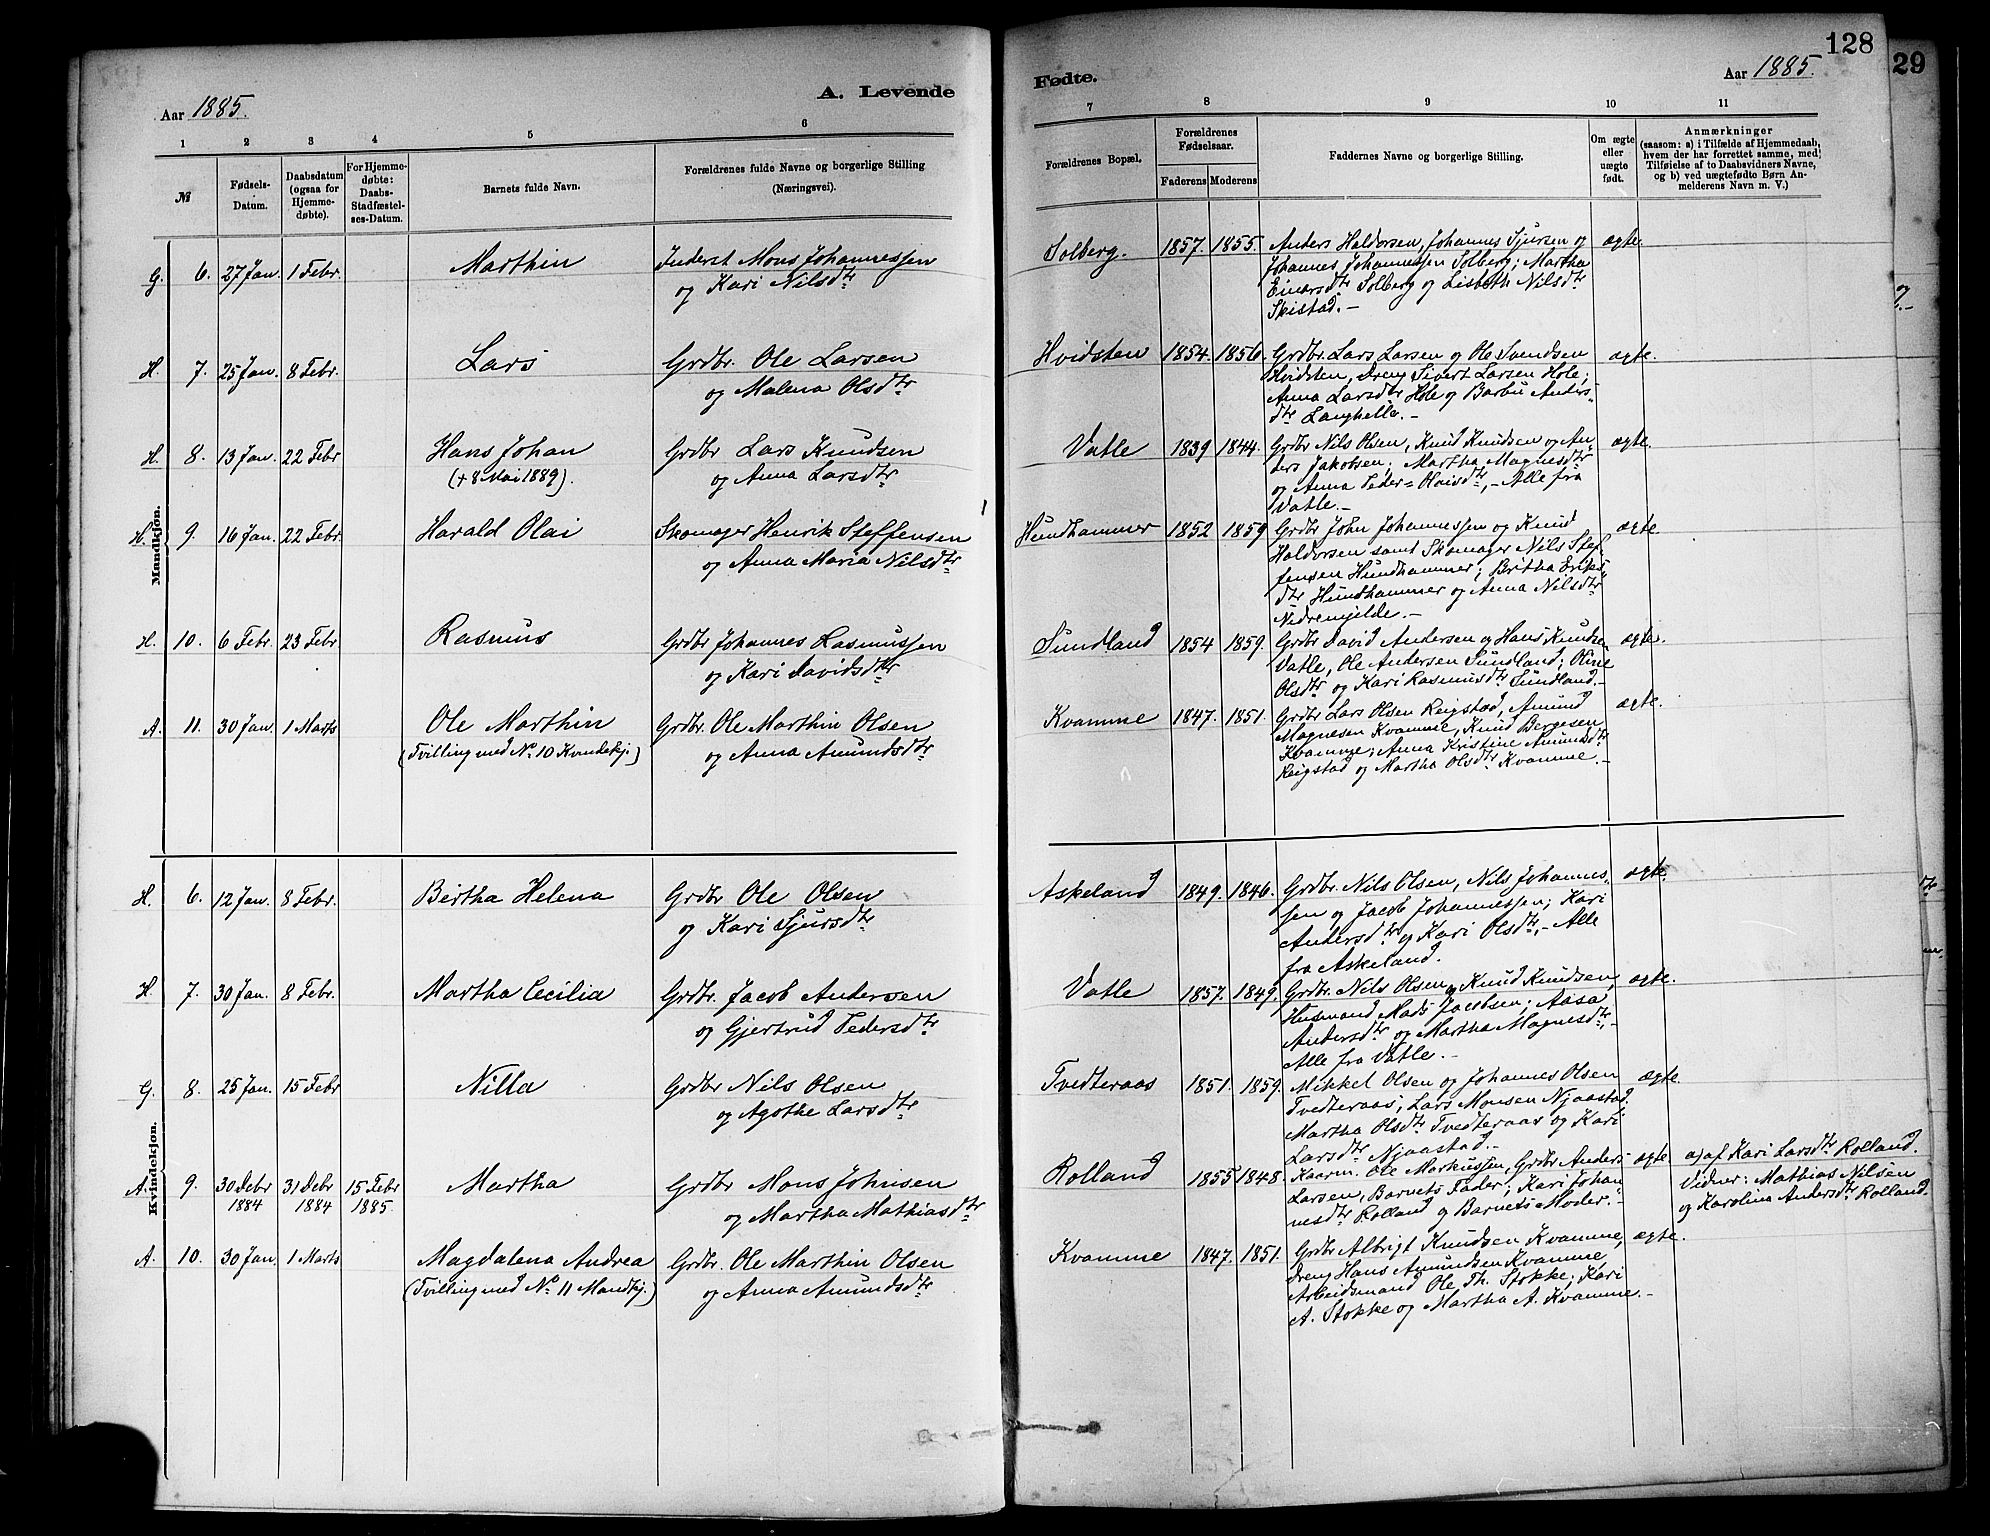 128
29
Aar 1885.
A. Levende
Fødte.
Aar 1885.
1 2 3 4 5 6
7 8 9 10 11
№
Fødsels-Datum.
Daabsdatum (ogsaa for Hjemmedøbte).
For Hjemmedøbte: Daabs-Stadfæstelses-Datum.
Barnets fulde Navn.
Forældrenes fulde Navne og borgerlige Stilling (Næringsvei).
Forældrenes Bopæl.
Forældrenes Fødselsaar.
Faderens Moderens
Faddernes Navne og borgerlige Stilling.
Om ægte eller uægte født.
Anmærkninger
(saasom: a) i Tilfælde af Hjemmedaab,
hvem der har forrettet samme, med
Tilføielse af to Daabsvidners Navne,
og b) ved uægtefødte Børn An-
melderens Navn m. V.)
Mandkjøn.
G. 6. 27 Jan. 1 Febr. Marthin Inderst Mons Johannessen
og Kari Nilsdtr
Solberg. 1857. 1855. Anders Haldorsen, Johannes Sjursen og ægte.
Johannes Johannessen Solberg; Martha
Einarsdtr Solberg og Lisbeth Nilsdtr
Skistad. –
H. 7. 25 Jan. 8 Febr. Lars Grdbr. Ole Larsen
og Malena Olsdtr
Hvidsten 1854. 1856. Grdbr. Lars Larsen og Ole Svendsen ægte.
Hvidsten, Dreng Sivert Larsen Hole;
Anna Larsdtr Hole og Barbu Anders-
dtr Langhelle. –
H. 8. 13 Jan. 22 Febr Hans Johan Grdbr Lars Knudsen
(+ 8 Mai 1889). og Anna Larsdtr
Vatle 1839 1844. Grdbr Nils Olsen, Knud Knudsen og An- ægte.
ders Jakobsen; Martha Magnesdtr
og Anna Peder = Olaisdtr, – Alle fra
Vatle. –
H. 9. 16 Jan. 22 Febr. Harald Olai Skomager Henrik Steffensen
og Anna Maria Nilsdtr
Hundhammer 1852 1859 Grdbr John Johannessen og Knud ægte
Haldorsen samt Skomager Nils Stef-
fensen Hundhammer; Britha Eriks-
dtr Hundhammer og Anna Nilsdtr
Nidremjelde. –
H. 10. 6 Febr. 23 Febr Rasmus Grdbr Johannes Rasmussen
og Kari Davidsdtr
Sundland 1854 1859. Grdbr David Andersen og Hans Knudsen ægte.
Vatle, Ole Andersen Sundland; Oline
Olsdtr og Kari Rasmusdtr Sundland. –
A. 11. 30 Jan. 1 Marts Ole Marthin Grdbr. Ole Marthin Olsen
(Tvilling med No 10 Kvindekj.) og Anna Amundsdtr
Kvamme 1847. 1851. Grdbr Lars Olsen Reigstad, Amund ægte.
Magnesen Kvamme, Knud Børgesen
Kvamme; Anna Kristine Amundsdtr
Reigstad og Martha Olsdtr Kvamme. –
Kvindekjøn.
H. 6. 12 Jan. 8 Febr. Bertha Helena Grdbr Ole Olsen
og Kari Sjursdtr
Askeland 1849. 1846. Grdbr. Nils Olsen, Nils Johannes- ægte.
sen og Jacob Johannessen; Kari
Andersdtr og Kari Olsdtr, – Alle
fra Askeland.
H. 7. 30 Jan. 8 Febr. Martha Cecilia Grdbr. Jacob Andersen
og Gjertrud Pedersdtr
Vatle 1857. 1849. Grdbr. Nils Olsen og Knud Knudsen, ægte.
Husmand Mads Jacobsen; Aasa
Andersdtr og Martha Magnesdtr, –
Alle fra Vatle. –
G. 8. 25 Jan. 15 Febr Nilla Grdbr Nils Olsen
og Agothe Larsdtr
Tvedteraas 1851. 1859. Mikkel Olsen og Johannes Olsen ægte.
Tvedteraas, Lars Monsen Njaastad.
Martha Olsdtr Tvedteraas og Kari
Larsdtr Njaastad. –
A. 9. 30 Debr 1884 31 Debr 1884 15 Febr 1885. Martha Grdbr Mons Johnsen
og Martha Mathiasdtr
Rolland 1855 1848. Kaarm. Ole Markussen, Grdbr Anders ægte
Larsen, Barnets Fader; Kari Johan-
nesdtr Rolland og Barnets Moder. –
a) af Kari Larsdtr Rolland.
Vidner: Mathias Nilsen
og Karolina Andersdtr Rolland.
A. 10. 30 Jan. 1 Marts Magdalena Andrea Grdbr. Ole Marthin Olsen
(Tvilling med No 11 Mandkj.) og Anna Amundsdtr
Kvamme 1847. 1851. Grdbr Albrigt Knudsen Kvamme, ægte.
Dreng Hans Amundsen Kvamme,
Arbeidsmand Ole Th. Stokke; Kari
A. Stokke og Martha A. Kvamme. –